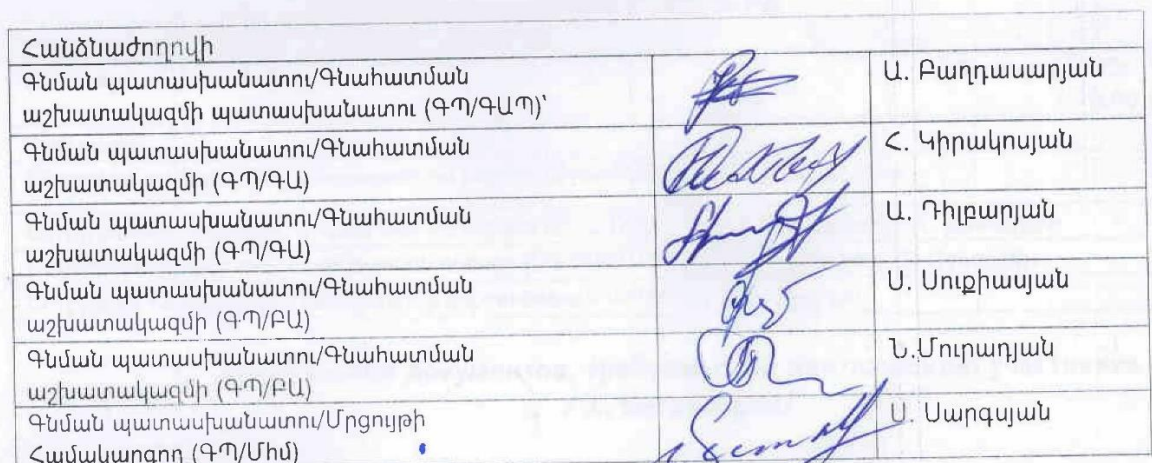 Հանձնաժողովի
Գնման պատասխանատու/Գնահատման
աշխատակազմի պատասխանատու (ԳՊ/ԳԱՊ)՝
Ա. Բաղդասարյան
Գնման պատասխանատու/Գնահատման
աշխատակազմի (ԳՊ/ԳԱ)
Հ. Կիրակոսյան
Գնման պատասխանատու/Գնահատման
աշխատակազմի (ԳՊ/ԳԱ)
Ա. Դիլբարյան
Գնման պատասխանատու/Գնահատման
աշխատակազմի (ԳՊ/ԲԱ)
Ս. Սուքիասյան
Գնման պատասխանատու/Գնահատման
աշխատակազմի (ԳՊ/ԲԱ)
Ն.Մուրադյան
Գնման պատասխանատու/Մրցույթի
Համակարգող (ԳՊ/Մհմ)
Ս. Սարգսյան